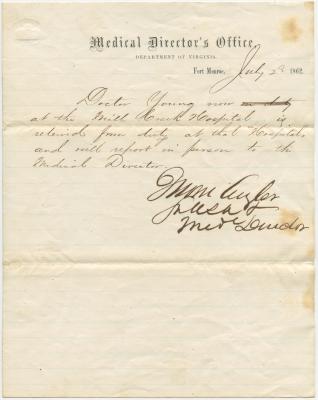 Medical Director's Office,
DEPARTMENT OF VIRGINIA,
Fort Monroe, July 2d 1862
Doctor Young now on duty
at the Mill Creek Hospital is
relieved from duty at that Hospital
and will report in person to the
Medical Director
USA
Med Director